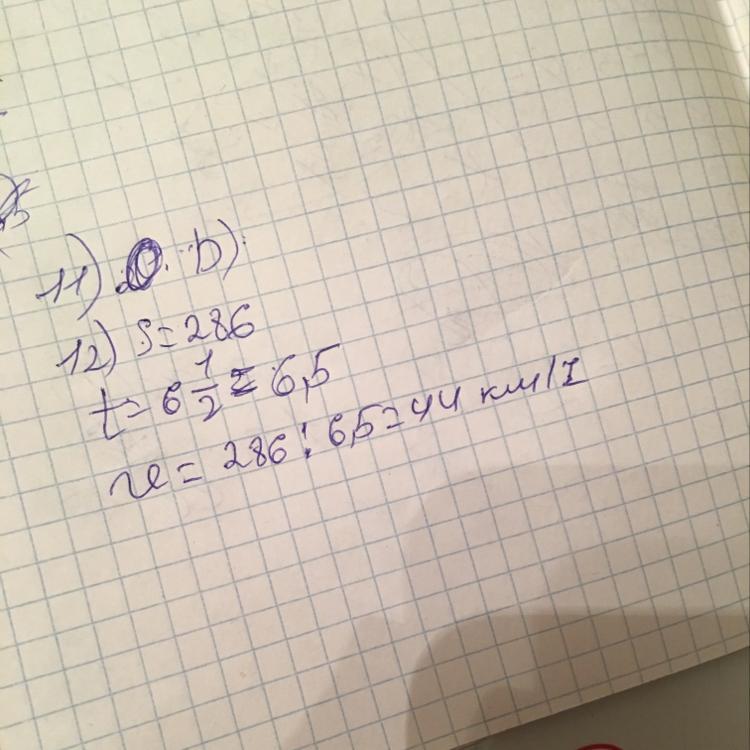 11) b)
12) S=286
t=6 1/2=6,5
v=286:6,5=44 км/